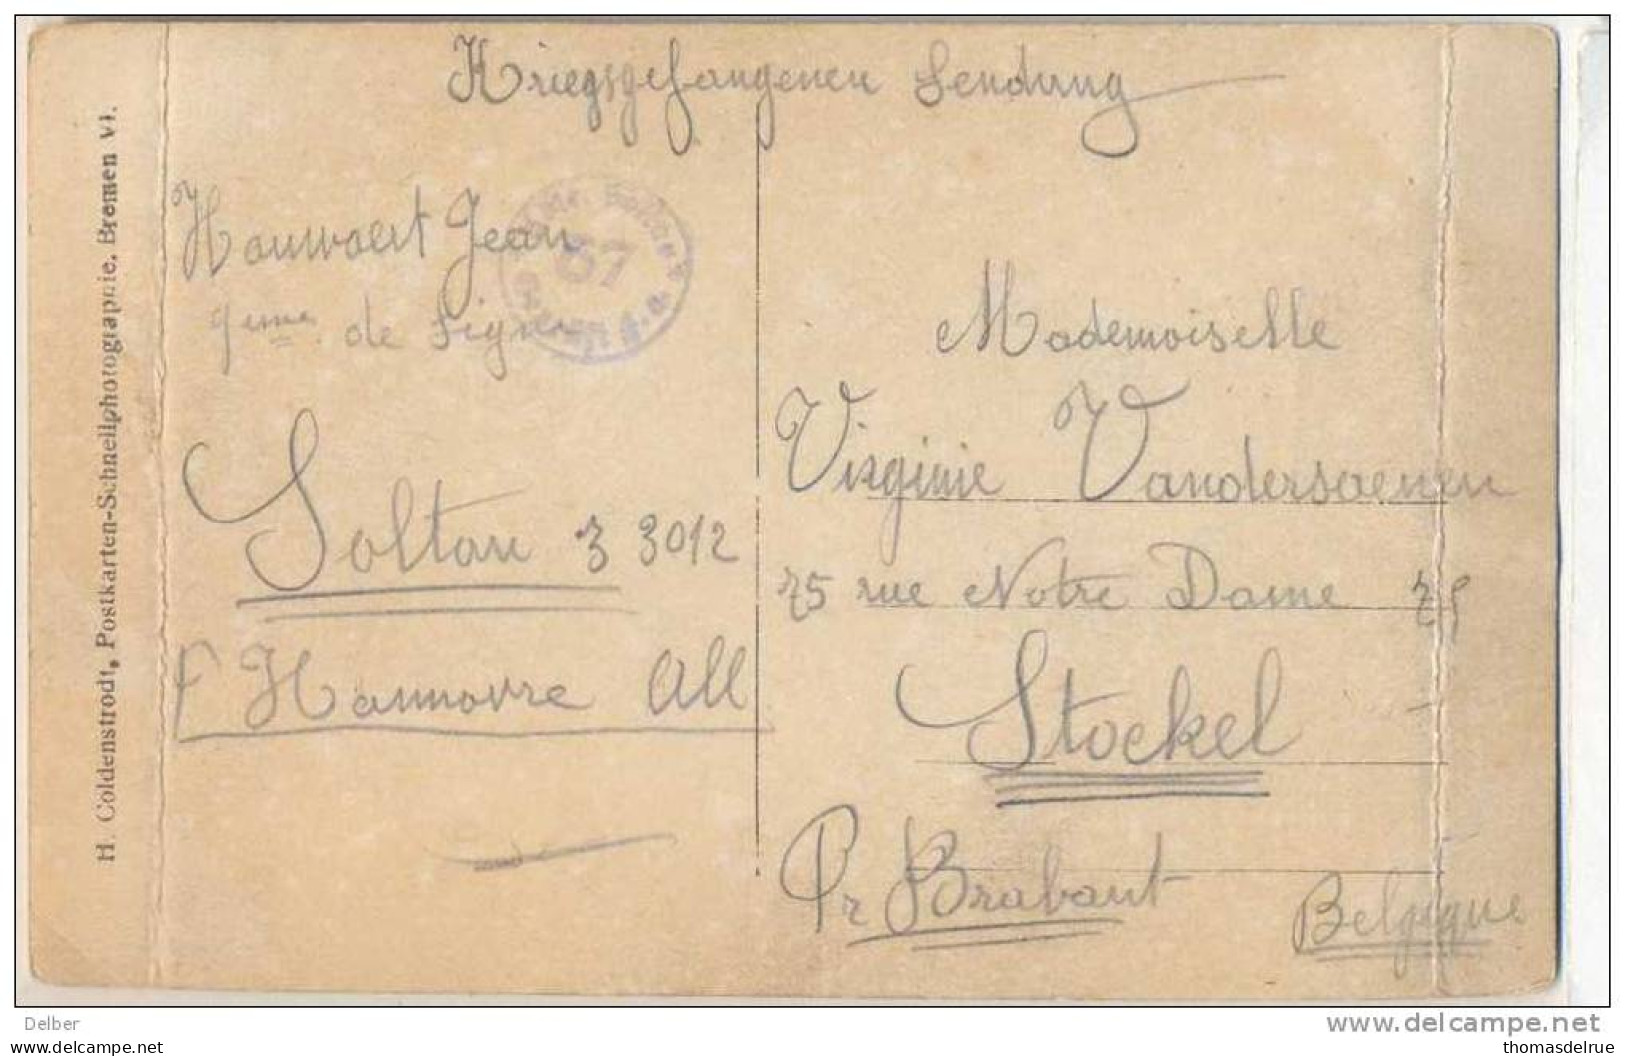 Kriegsgefangenen Sendung
Hauwaert Jean
9eme de Ligne
37
Soltau z 3012
Hannovre All
Mademoiselle
Virginie Vandersaenen
75 rue Notre Dame 75
Stockel
Pr Brabant
Belgique
H. Coldenstrodt, Postkarten-Schnellphotographie, Bremen VI.
Delber
www.delcampe.net
thomasdelrue.com
thomasdelrue